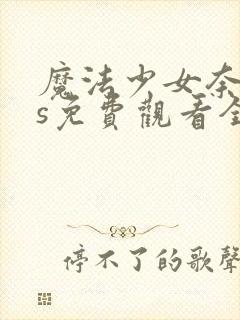 魔法少女奈
s免費觀看全
停不了的歌聲